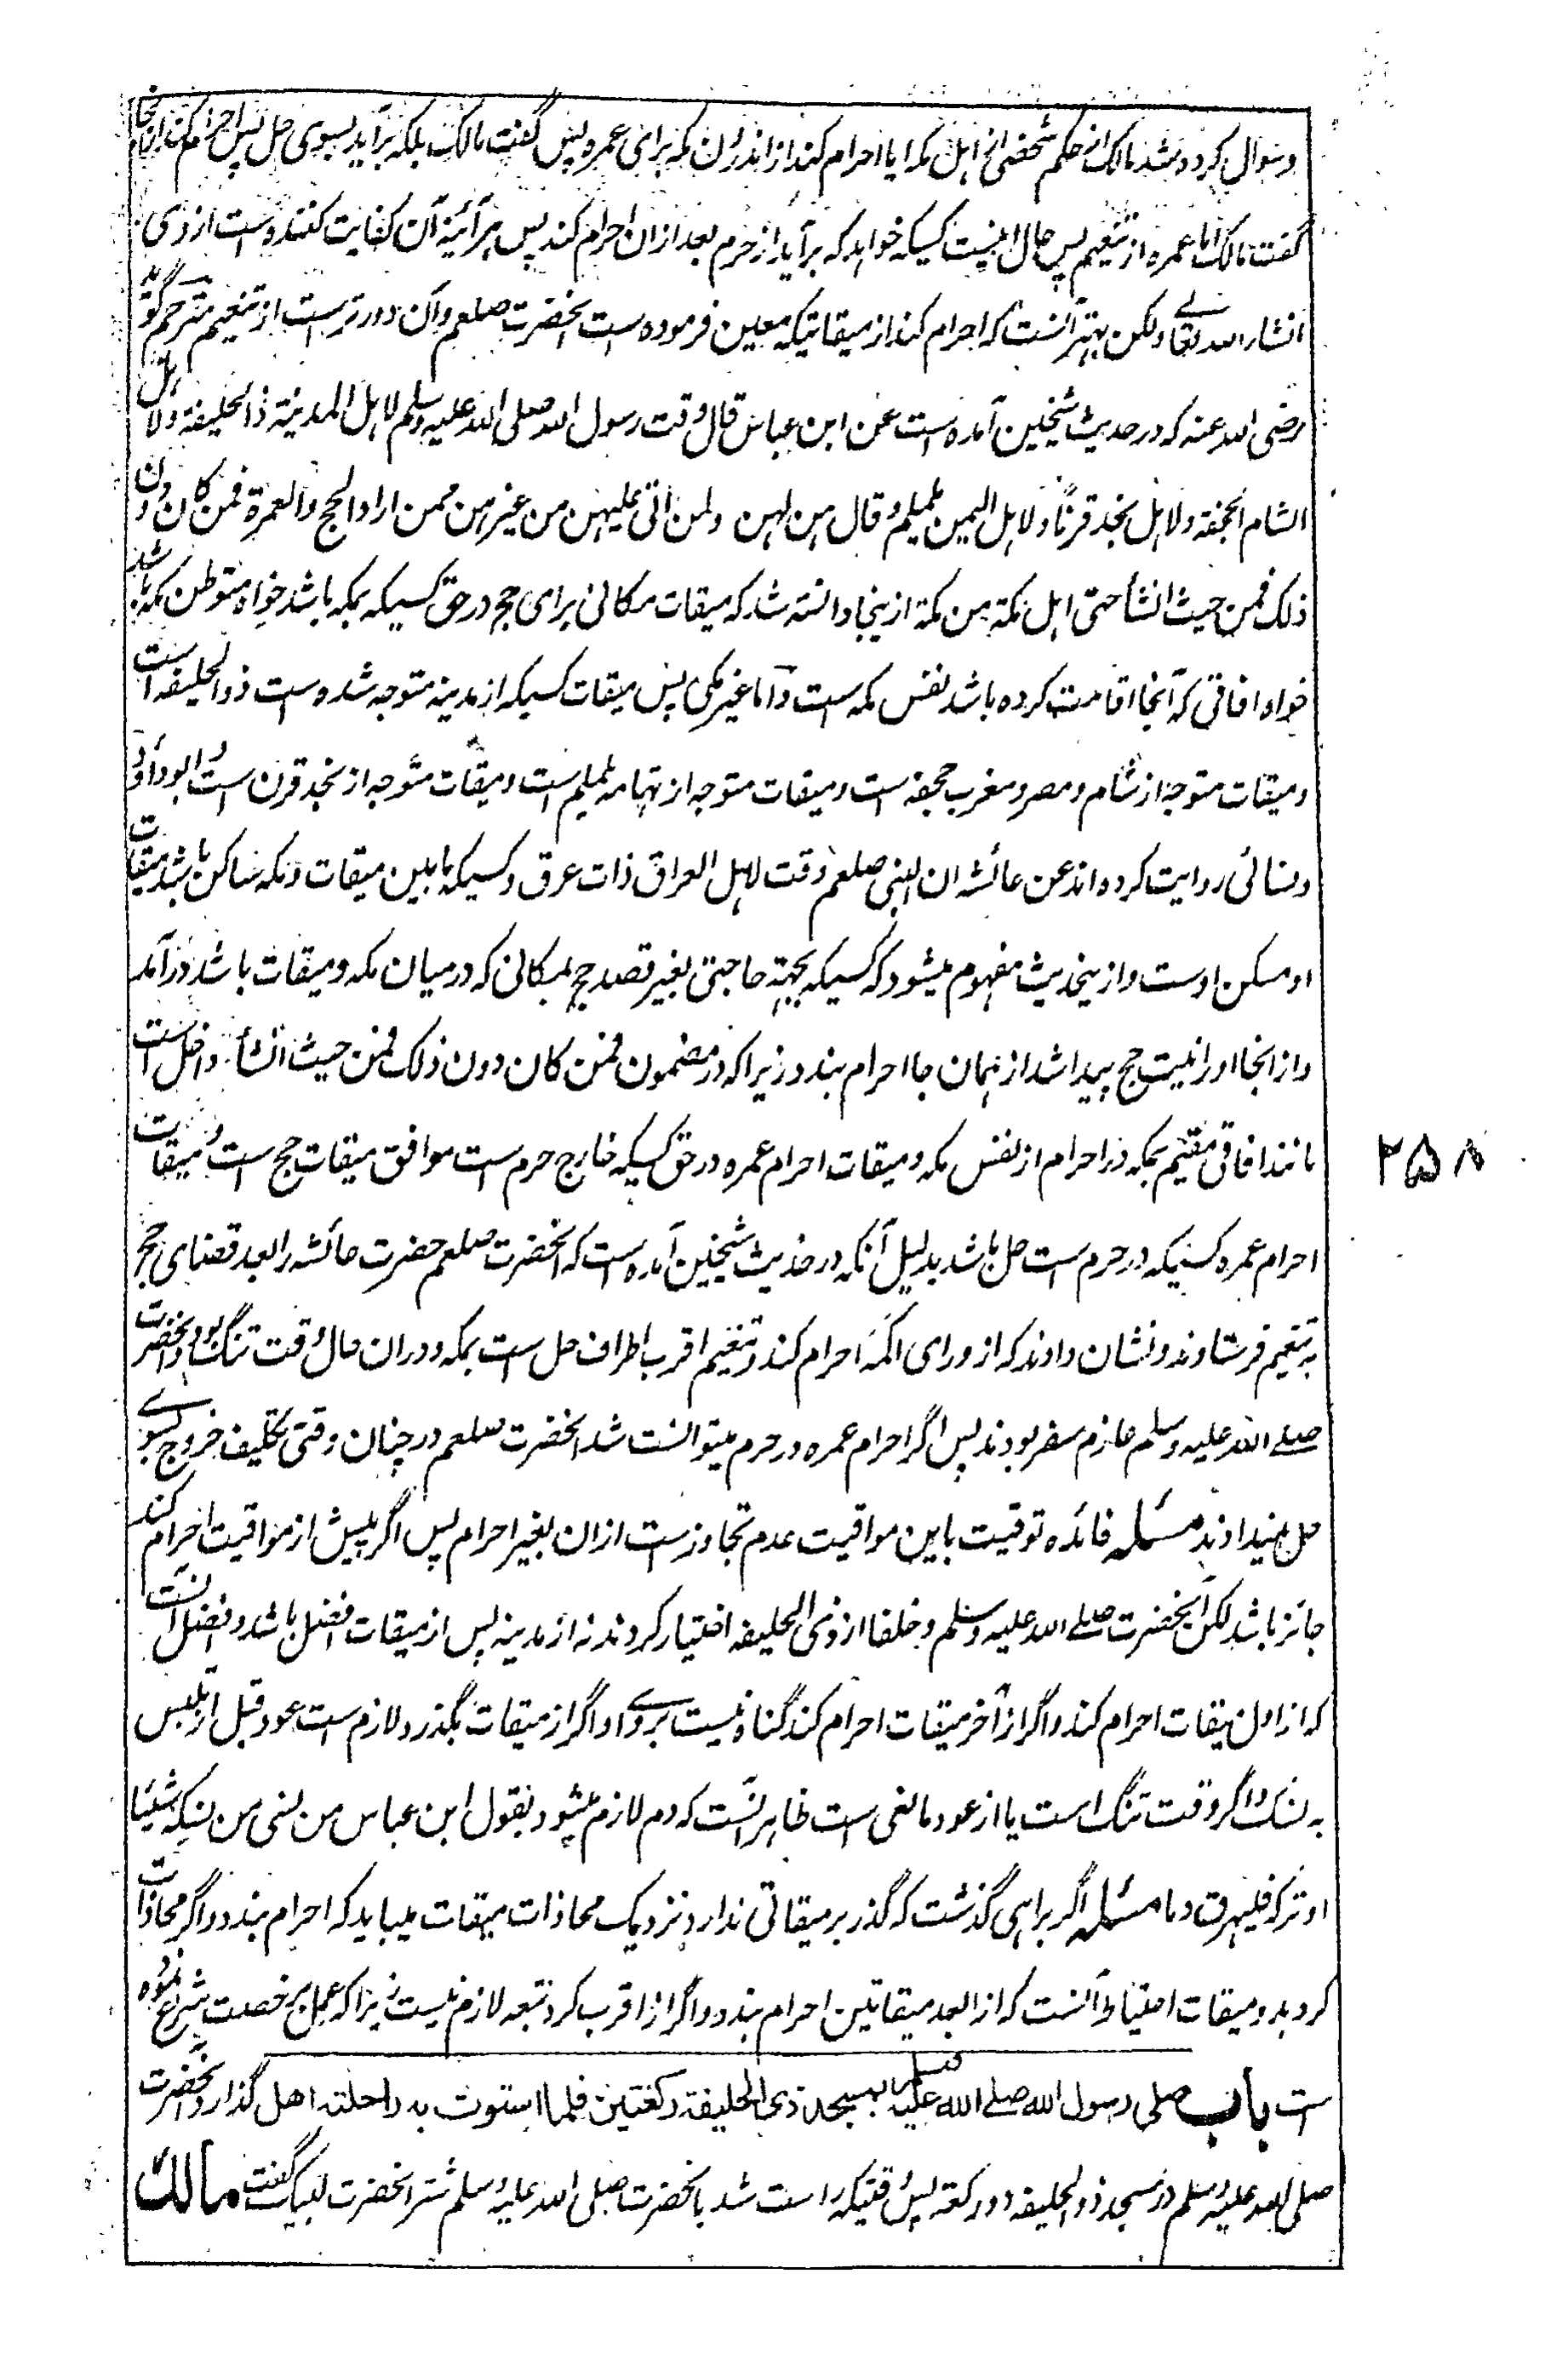 وسوال کرده شد مالک از حکم شخصی از اہل مکہ ایا احرام کند از اندرون مکہ برای عمره پس گفت مالک بلکہ برآید بسوی حل پس احرام کند ازانجا
گفت مالک اما عمره از تنعیم پس حال اینست کسیکہ خواہد کہ برآید از حرم بعد ازان احرام کند پس ہرآئینہ آن کفایت کننده است از وی
انشاء اللہ تعالے ولکن بہتر آنست کہ احرام کند از میقاتیکہ معین فرموده است آنحضرت صلعم وآن دورتر است از تنعیم مترجم گوید
رضی اللہ عنہ کہ در حدیث شیخین آمده است عن ابن عباس قال وقت رسول اللہ صلی اللہ علیہ وسلم لاہل المدینۃ ذا الحلیفۃ ولاہل
الشام الجحفۃ ولاہل نجد قرنا ولاہل الیمن یلملم وقال ہن لہن ولمن اتی علیہن من غیرہن ممن اراد الحج والعمرۃ فمن کان دون
ذلک فمن حیث انشأ حتی اہل مکۃ من مکۃ ازینجا دانستہ شد کہ میقات مکانی برای حج در حق کسیکہ بمکہ باشد خواه متوطن مکہ باشد
خواه افاقی کہ آنجا اقامت کرده باشد نفس مکہ است واما غیر مکی پس میقات کسیکہ از مدینہ متوجہ شده است ذو الحلیفہ است
ومیقات متوجہ از شام ومصر ومغرب جحفہ است ومیقات متوجہ از تہامہ یلملم است ومیقات متوجہ از نجد قرن است وابوداؤد
ونسائی روایت کرده اند عن عائشہ ان النبی صلعم وقت لاہل العراق ذات عرق وکسیکہ مابین میقات ومکہ ساکن باشد میقات
او مسکن اوست وازینحدیث مفہوم میشود کہ کسیکہ بجہتہ حاجتی بغیر قصد حج بمکانی کہ درمیان مکہ ومیقات باشد درآمد
وازانجا اورا نیت حج پیدا شد از ہمان جا احرام بندد زیرا کہ در مضمون فمن کان دون ذلک فمن حیث انشأ داخل است
مانند افاقی مقیم بمکہ در احرام از نفس مکہ ومیقات احرام عمره در حق کسیکہ خارج حرم است موافق میقات حج است ومیقات
احرام عمره کسیکہ در حرم است حل باشد بدلیل آنکہ در حدیث شیخین آمده است کہ آنحضرت صلعم حضرت عائشہ را بعد قضای حج
بہ تنعیم فرستادند ونشان دادند کہ از ورای اکمہ احرام کند وتنعیم اقرب اطراف حل است بمکہ ودران حال وقت تنگ بود وآنحضرت
صلے اللہ علیہ وسلم عازم سفر بودند پس اگر احرام عمره در حرم میتوانست شد آنحضرت صلعم در چنان وقتی تکلیف خروج بسوے
حل نمیدادند مسئلہ فائده توقیت باین مواقیت عدم تجاوز است ازان بغیر احرام پس اگر پیش از مواقیت احرام کند
جائز باشد لکن آنحضرت صلے اللہ علیہ وسلم وخلفا از ذی الحلیفہ اختیار کردند نہ از مدینہ پس از میقات افضل باشد وافضل آنست
کہ از اول میقات احرام کند واگر از آخر میقات احرام کند گناه نیست بروے واگر از میقات بگذرد لازم است عود قبل از تلبس
بہ نسک واگر وقت تنگ است یا از عود مانعی است ظاہر آنست کہ دم لازم میشود بقول ابن عباس من نسی من نسکہ شیئا
او ترکہ فلیہرق دما مسئلہ اگر براہی گذشت کہ گذر بر میقاتی ندارد نزدیک محاذات میقات میباید کہ احرام بندد واگر محاذات
کرد بدو میقات احتیاط آنست کہ از ابعد میقاتین احرام بندد واگر از اقرب کرد تبعہ لازم نیست زیرا کہ عمل بر خصت شرع نموده
است باب صلی رسول اللہ صلے اللہ علیہ وسلم بمسجد ذی الحلیفۃ رکعتین فلما استوت بہ راحلتہ اہل گذارد آنحضرت
صلی اللہ علیہ وسلم در مسجد ذو الحلیفہ دو رکعتہ پس وقتیکہ راست شد بآنحضرت صلی اللہ علیہ وسلم شتر آنحضرت لبیک گفت مالک
۲۵۸